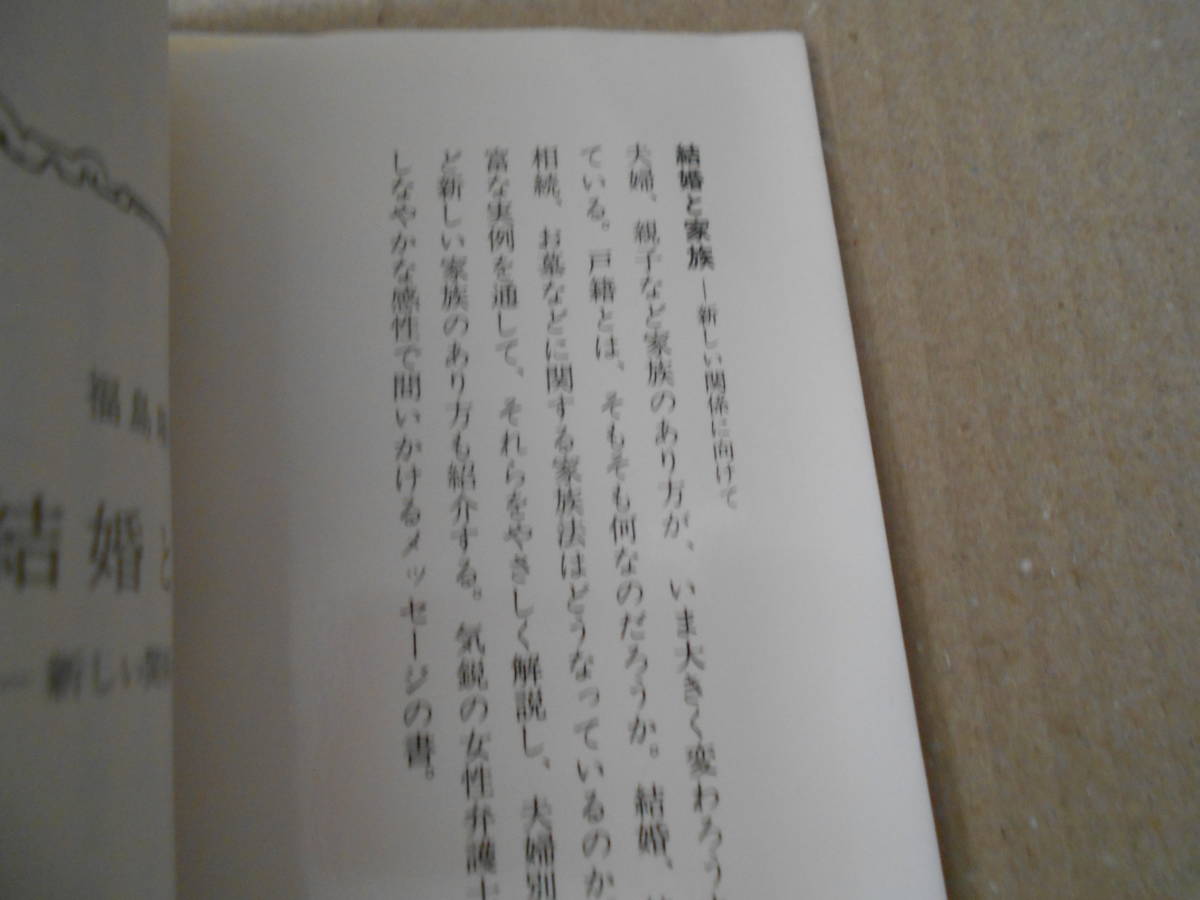 結婚と家族 ―新しい関係に向けて
夫婦、親子など家族のあり方が、いま大きく変わろう
ている。戸籍とは、そもそも何なのだろうか。結婚、
相続、お墓などに関する家族法はどうなっているのか
富な実例を通して、それらをやさしく解説し、夫婦別
ど新しい家族のあり方も紹介する。気鋭の女性弁護士
しなやかな感性で問いかけるメッセージの書。
福島
結婚と
―新しい